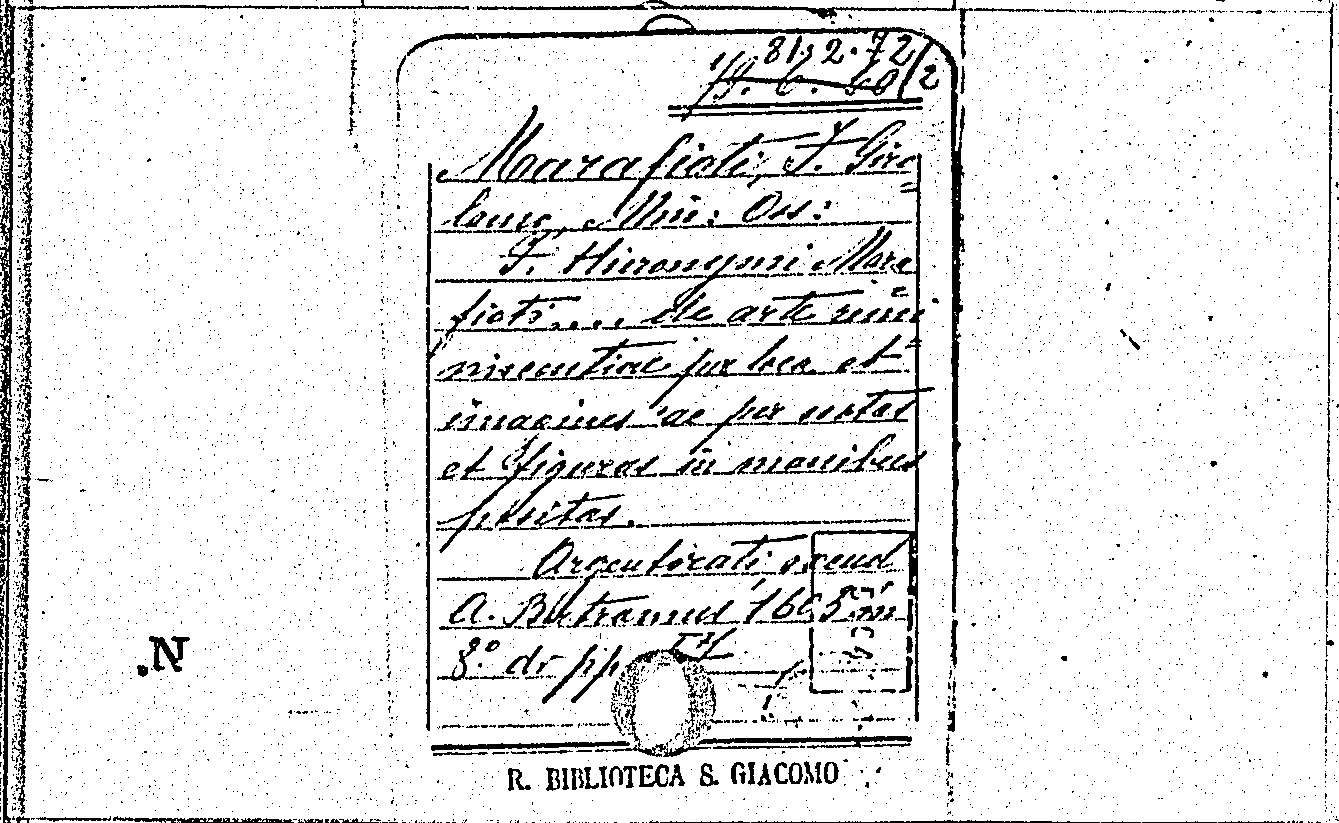 81. 2. 72/2
Marafioti, F. Giro=
lamo, Min: Oss:
F. Hieronymi Mara=
fioti.... de arte remi=
niscentiae per loca et
imagines ac per notas
et figuras in manibus
positas.
Argentorati, excud
A. Bertramus, 1603 in
8.° di pp.
R. BIBLIOTECA S. GIACOMO
N.